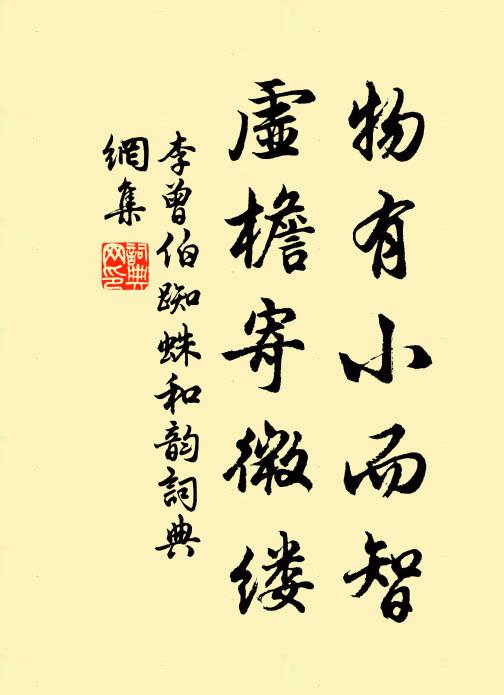 物有小而智
虛檐寄微缕
李曾伯踟蛛和韵詞典
網集
詞典
网印